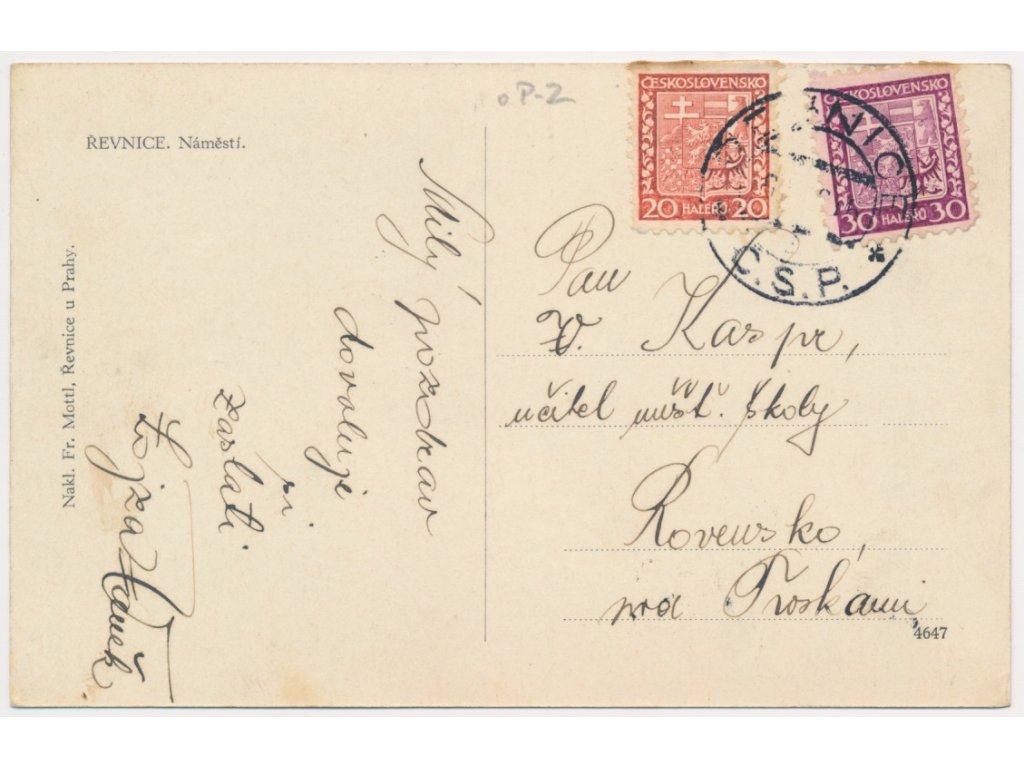 oP-Z
ŘEVNICE. Náměstí.
Nakl. Fr. Mottl, Řevnice u Prahy.
Milý pozdrav
dovoluje
si
zaslati
Lojza Haněk.
ČESKOSLOVENSKO
20 HALÉŘŮ 20
ČESKOSLOVENSKO
30 HALÉŘŮ 30
Č.S.P.
Pan
V. Kaspr,
učitel měšť. školy
Rovensko,
pod Troskami
4647